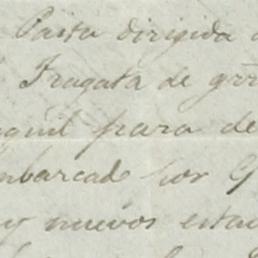 Carta dirigida a
Fragata de grr
aquil para de
mbarcado por G
y nuevos estad